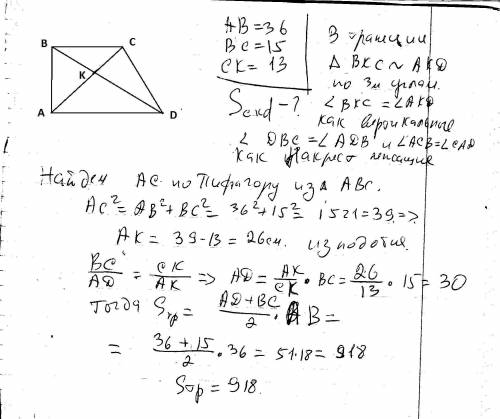 B C
K
A D
AB=36
BC=15
CK=13
Sckd-?
В трапеции
Δ BKC ~ AKD
по 3м углам.
∠BKC=∠AKD
как вертикальные
∠DBC=∠ADB и ∠ACB=∠CAD
как накрест лежащие
Найдем AC по Пифагору из Δ ABC.
AC²=AB²+BC²=36²+15²=1521=39=>
AK=39-13=26см. из подобия.
BC/AD=CK/AK => AD=AK/CK·BC=26/13·15=30
Тогда Sтр=AD+BC/2·AB=
=36+15/2·36=51·18=918
Sтр=918.